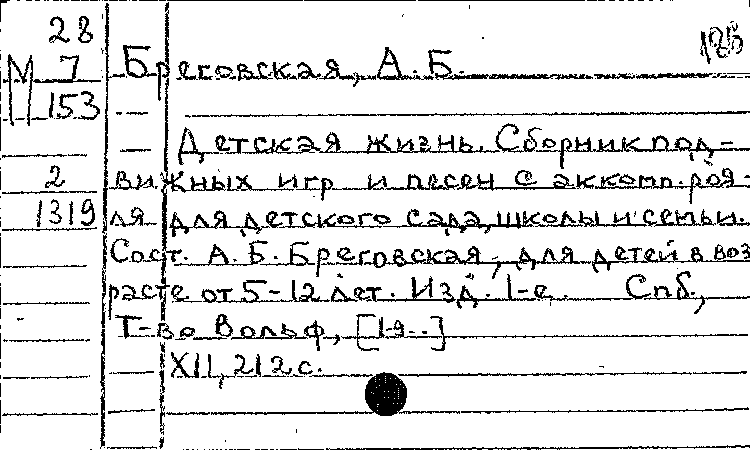 28
М 7
153
Бреговская, А. Б.
Детская жизнь. Сборник под-
2 вижных игр и песен с аккомп. роя-
1319 ля для детского сада, школы и семьи.
Сост. А. Б. Бреговская, для детей в воз
расте от 5-12 лет. Изд. 1-е. Спб.,
Т-во Вольф, [19..]
XII, 212 с.